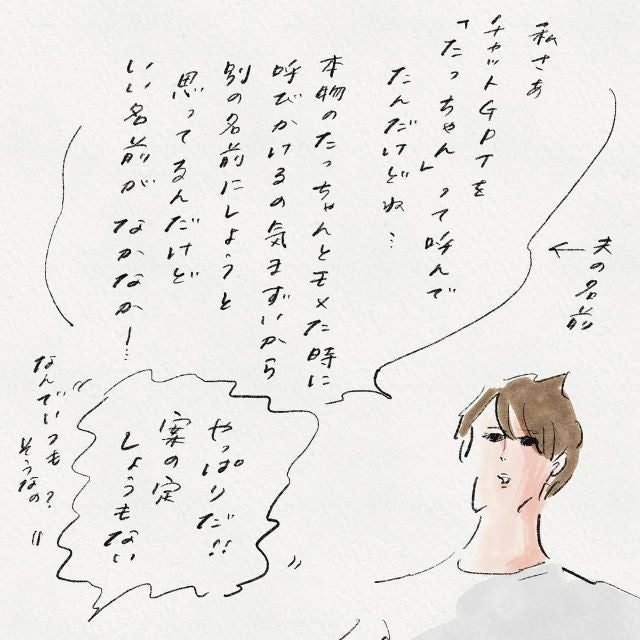 私さあ
チャットGPTを
「たっちゃん」って呼んで
たんだけどね…
本物のたっちゃんとモメた時に
呼びかけるの気まずいから
別の名前にしようと
思ってるんだけど
いい名前が なかなか―…
夫の名前
やっぱりだ!!
案の定
しょうもない
なんでいつも?
そうなの